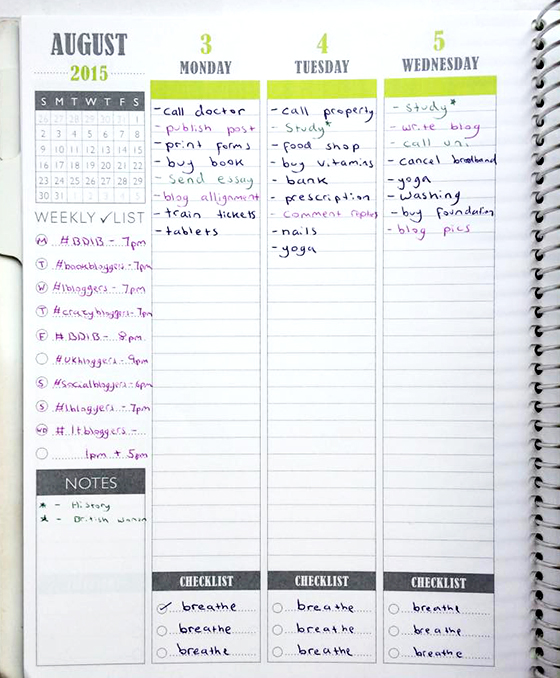 AUGUST
2015
S M T W T F S
26 27 28 29 30 31 1
2 3 4 5 6 7 8
9 10 11 12 13 14 15
16 17 18 19 20 21 22
23 24 25 26 27 28 29
30 31
WEEKLY ✓LIST
M #BDIB - 7pm
T #bookbloggers - 7pm
W #lbloggers - 7pm
T #crazybloggers - 7pm
F #BDIB - 8pm
#UKbloggers - 9pm
S #Socialbloggers - 6pm
S #lbloggers - 7pm
WD #ltbloggers -
1pm + 5pm
NOTES
* - History
★ - British
3
MONDAY
- call doctor
- publish post
- print forms
- buy book
- send essay
- blog allignment
- train tickets
- tablets
CHECKLIST
✓ breathe
breathe
breathe
4
TUESDAY
- call property
- Study*
- food shop
- buy vitamins
- bank
- prescription
- comment replies
- nails
- yoga
CHECKLIST
breathe
breathe
breathe
5
WEDNESDAY
- Study*
- write blog
- call uni
- cancel broadband
- yoga
- washing
- buy foundation
- blog pics
CHECKLIST
breathe
breathe
breathe